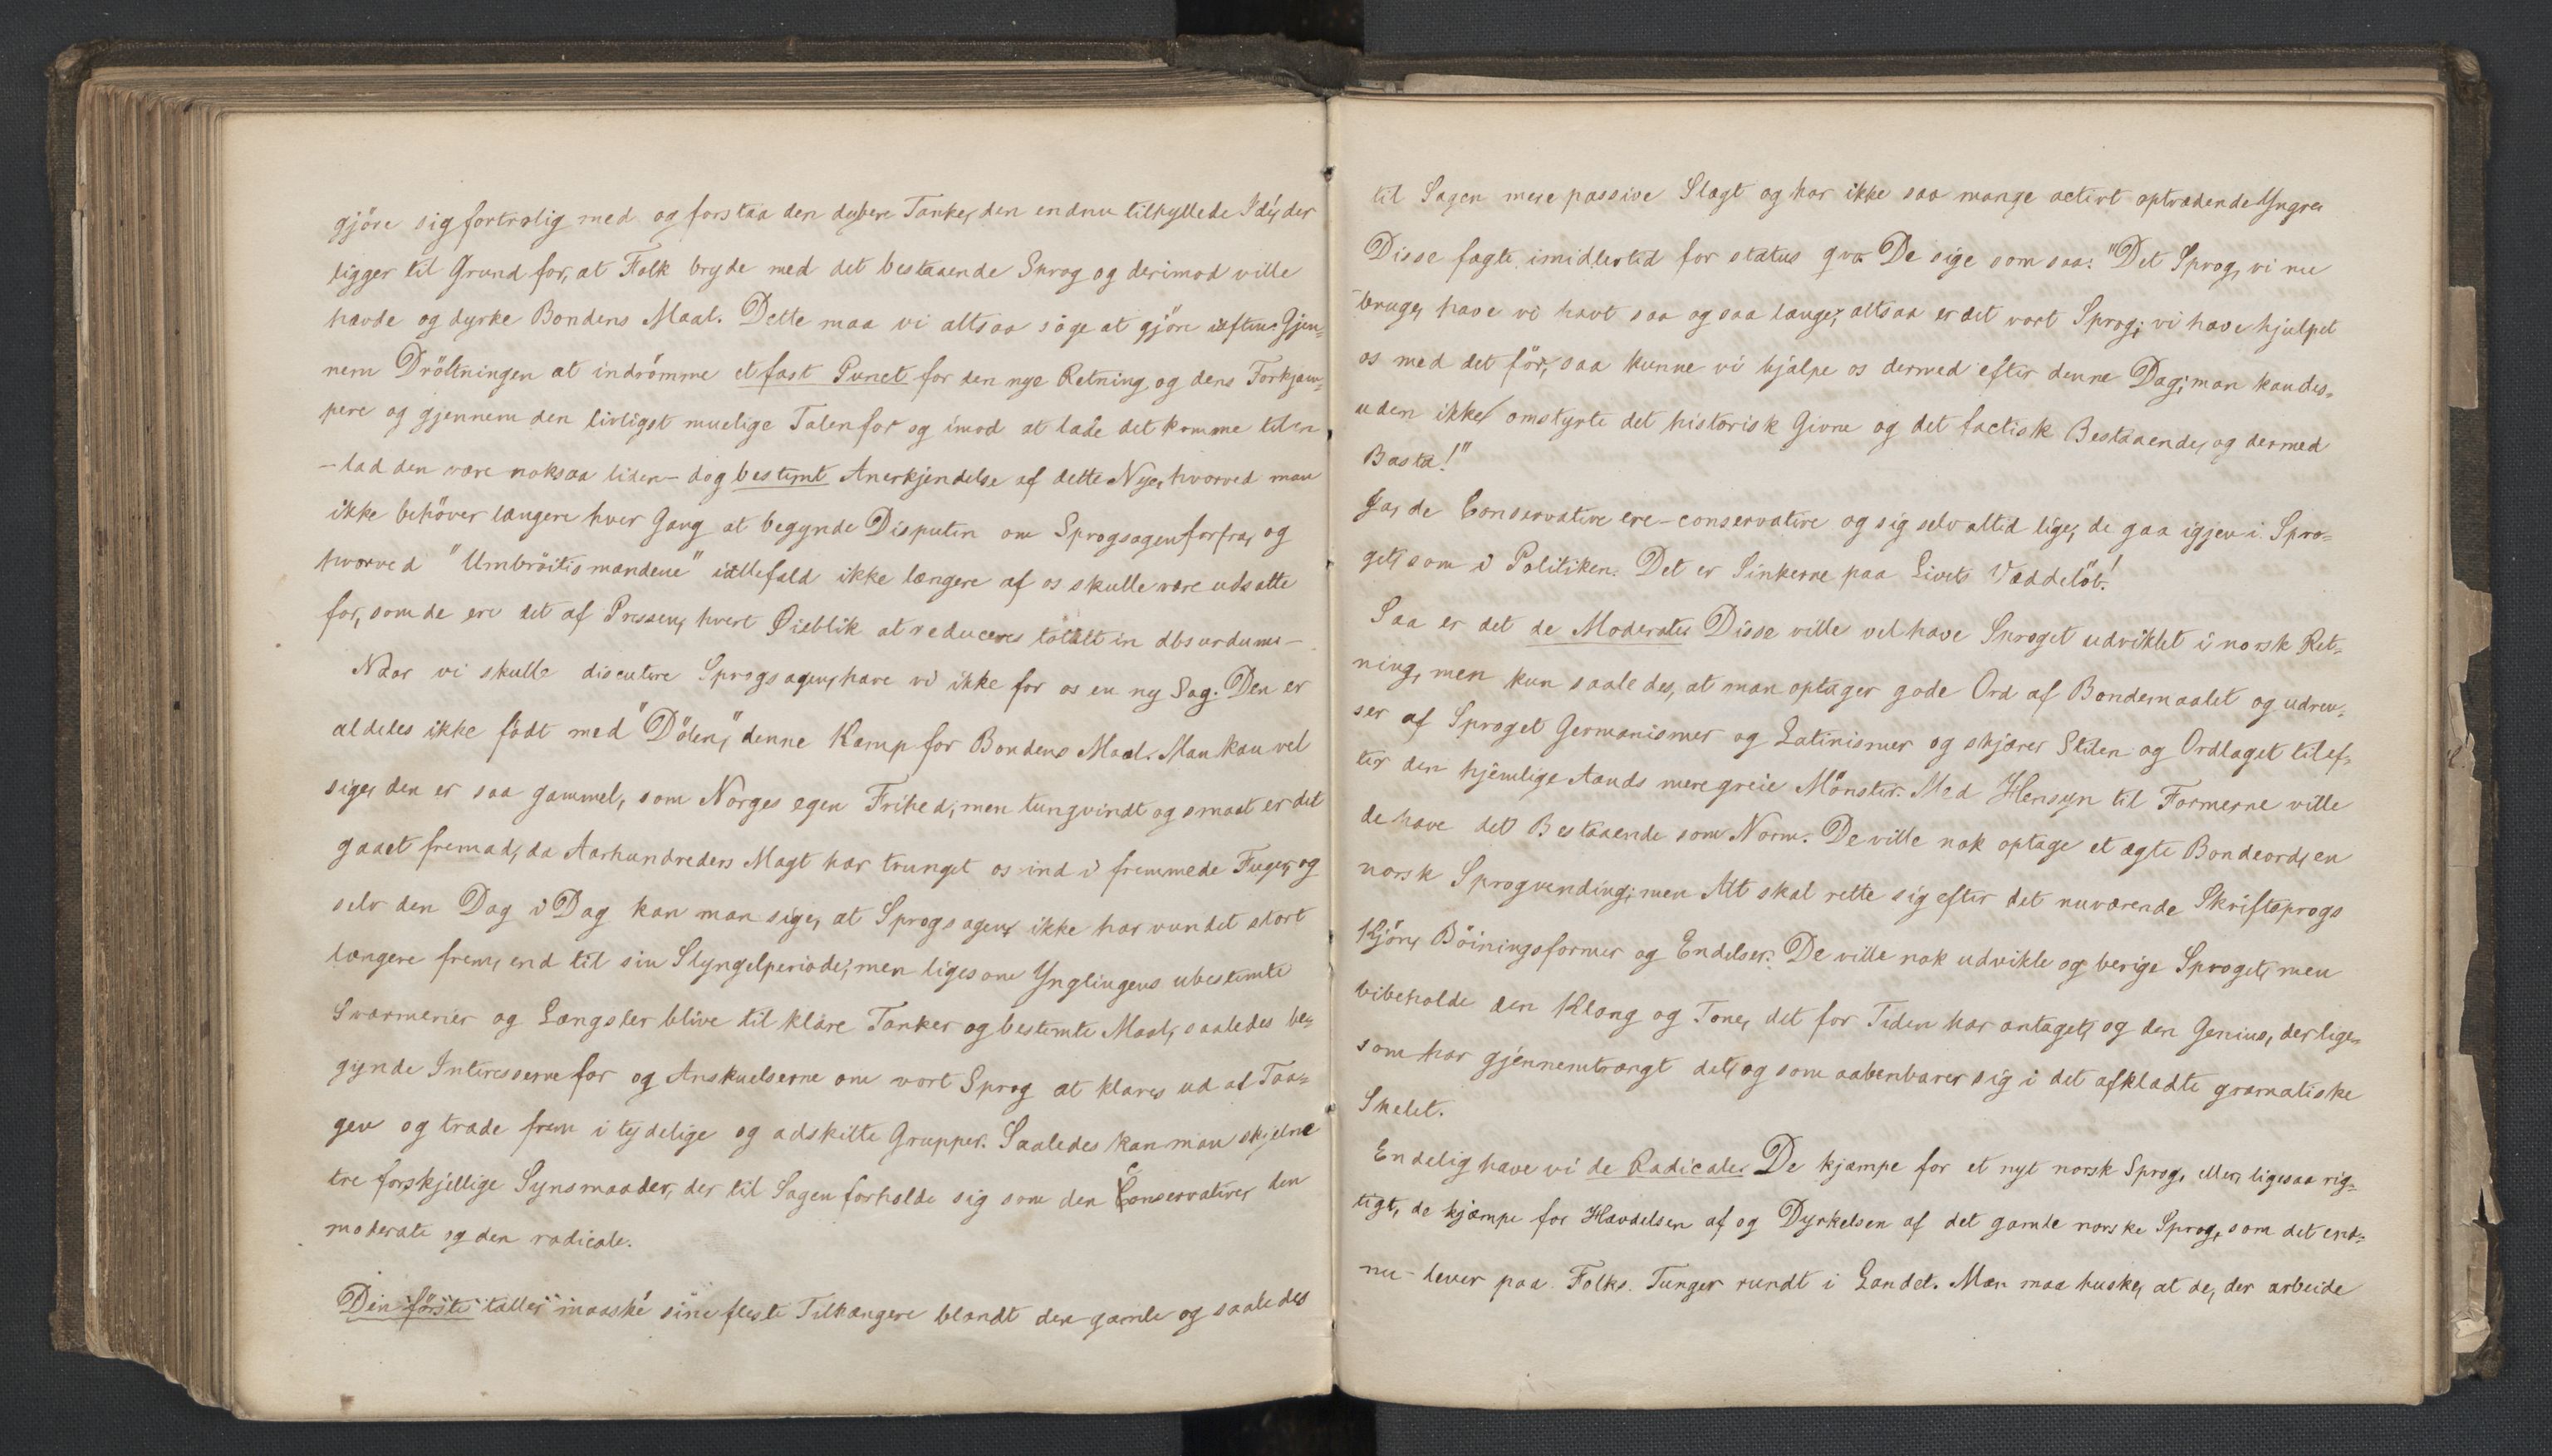 gjöre sig fortrolig med og forstaa den dybere Tanke, den endnu tilhyllede Idé, der
ligger til Grund for, at Folk bryde med det bestaaende Sprog og derimod ville
hævde og dyrke Bondens Maal. Dette maa vi altsaa söge at gjöre iaften: Gjen-
nem Dröftningen at indrömme et fast Punct for den nye Retning og dens Forkjæm-
pere og gjennem den livligst muelige Talen for og imod at lade det komme til en
- lad den være noksaa liden - dog bestemt Anerkjendelse af dette Nye, hvorved man
ikke behöver længere hver Gang at begynde Disputen om Sprogsagen forfra, og
hvorved "Umbröitismændene" iallefald ikke længere af os skulle være udsatte
for, som de ere det af Pressen, hvert Øieblik at reduceres totalt in absurdum. -
Naar vi skulle discutere Sprogsagen, have vi ikke for os en ny Sag. Den er
aldeles ikke födt med "Dölen", denne Kamp for Bondens Maal. Man kan vel
sige, den er saa gammel, som Norges egen Frihed, men tungvindt og smaat er det
gaaet fremad, da Aarhundreders Magt har trunget os ind i fremmede Fuger, og
selv den Dag i Dag kan man sige, at Sprogsagen ikke har vundet stort
længere frem, end til sin Slyngelperiode; men ligesom Ynglingens ubestemte
Sværmerier og Længsler blive til klare Tanker og bestemte Maal, saaledes be-
gynde Interesserne for og Anskuelserne om vort Sprog at klares ud af Taa-
gen og træde frem i tydelige og adskilte Grupper. Saaledes kan man skjelne
tre forskjellige Synsmaader, der til Sagen forholde sig som den Conservative, den
moderate og den radicale.
Den förste tæller maaské sine fleste Tilhængere blandt den gamle og saaledes
til Sagen mere passive Slægt og har ikke saa mange activt optrædende Yngre.
Disse fægte imidlertid for status qvo. De sige som saa: "Det Sprog, vi nu
bruge, have vi havt saa og saa længe, altsaa er det vort Sprog; vi have hjulpet
os med det för, saa kunne vi hjælpe os dermed efter denne Dag; man kan des-
uden ikke omstyrte det historisk Givne og det factisk Bestaaende, og dermed
Basta!"
Ja, de Conservative ere - conservative og sig selv altid lige, de gaa igjen i Spro-
get, som i Politiken. Det er Sinkerne paa Livets Væddelöb!
Saa er det de Moderate. Disse ville vel have Sproget udviklet i norsk Ret-
ning, men kun saaledes, at man optager gode Ord af Bondemaalet og udren-
ser af Sproget Germanismer og Latinismer og skjærer Stilen og Ordlaget til ef-
ter den hjemlige Aands mere greie Mönster. Med Hensyn til Formerne ville
de have det Bestaaende som Norm. De ville nok optage et ægte Bondeord, en
norsk Sprogvending; men Alt skal rette sig efter det nuværende Skriftsprogs
Kjön, Böiningsformer og Endelser. De ville nok udvikle og berige Sproget, men
bibeholde den Klang og Tone, det for Tiden har antaget, og den Genius, der lige-
som har gjennemtrængt det, og som aabenbarer sig i det afklædte gramatiske
Skelet.
Endelig have vi de Radicale. De kjæmpe for et nyt norsk Sprog, eller, ligesaa rig-
tigt, de kjæmpe for Hævdelsen af og Dyrkelsen af det gamle norske Sprog, som det end-
nu lever paa Folks Tunger rundt i Landet. Man maa huske, at de, der arbeide